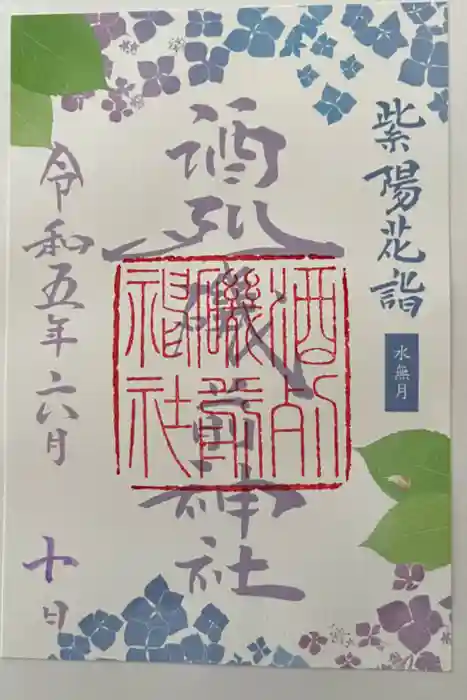 紫陽花詣
水無月
酒列磯前神社
酒列
磯前
神社
令和五年六月十日